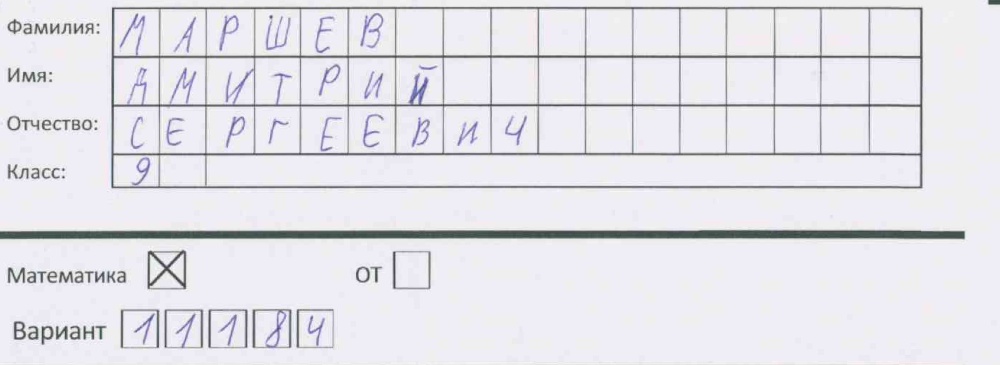 Фамилия: МАРШЕВ
Имя: ДМИТРИЙ
Отчество: СЕРГЕЕВИЧ
Класс: 9
Математика ОТ
Вариант 11184